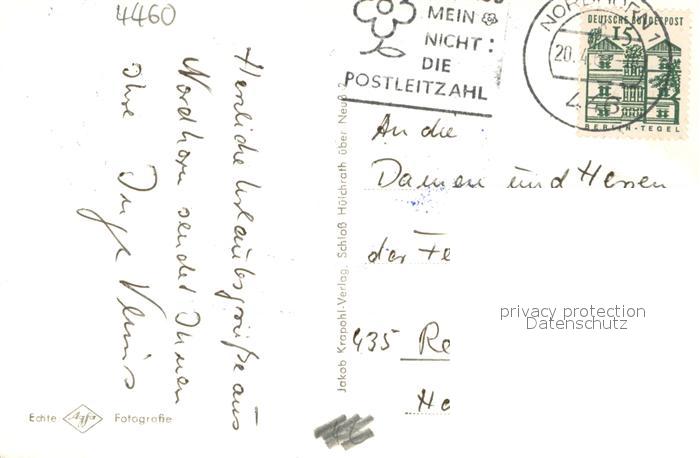 4460
Herzliche Urlaubsgrüße aus
Nordhorn sendet Ihnen
Ihre Inge
Echte Agfa Fotografie
Jakob Krapohl-Verlag, Schloß Hülchrath über Neuß 2
MEIN
NICHT:
DIE
POSTLEITZAHL
NORDHORN 1
20.4
DEUTSCHE BUNDESPOST
15
BERLIN-TEGEL
An die
Damen und Herren
der Fe
435 Re
He
privacy protection
Datenschutz